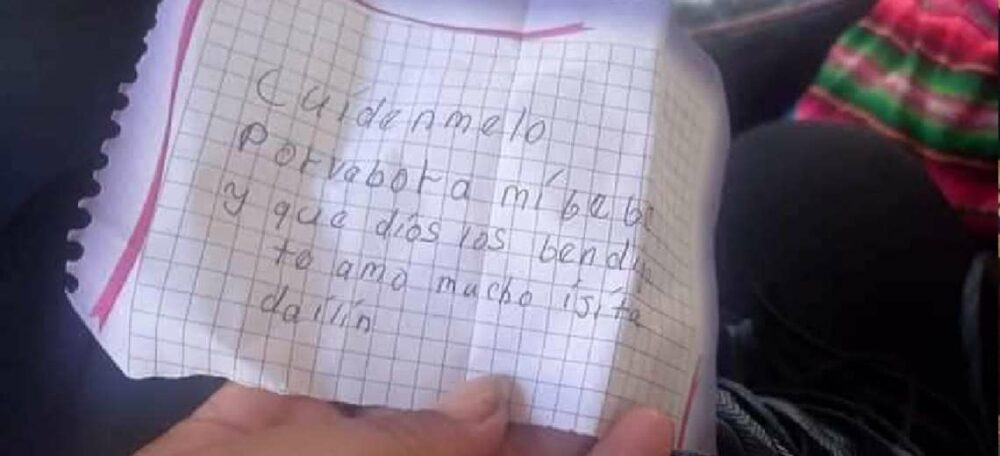 Cuídenmelo
Porvabor a mí bebe
y que díos los bendi
te amo mucho ísíta
daílín